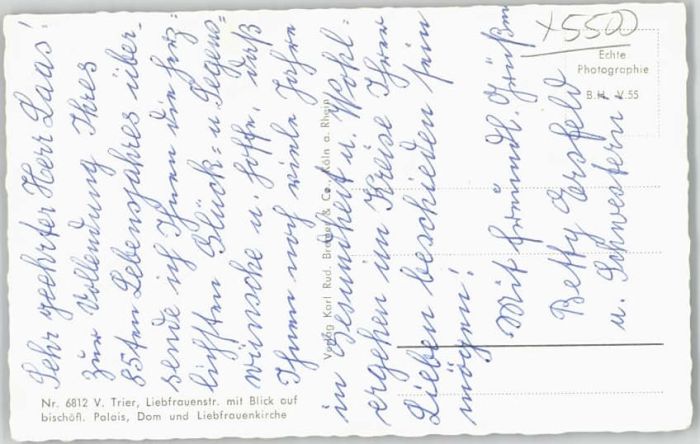 Sehr geehrter Herr Laas!
Zur Vollendung Ihres
85ten Lebensjahres über-
sende ich Ihnen die herz-
lichsten Glück- u. Segens-
wünsche u. hoffe, daß
Ihnen noch viele Jahre
in Gesundheit u. Wohl-
ergehen im Kreise Ihrer
Lieben beschieden sein
mögen!
Mit freundl. Grüßen
Betty Ersfeld
u. Schwestern!
x5500
Echte
Photographie
B.H. V.55
Verlag Karl Rud. Bremer & Co. Köln a. Rhein
Nr. 6812 V. Trier, Liebfrauenstr. mit Blick auf
bischöfl. Palais, Dom und Liebfrauenkirche